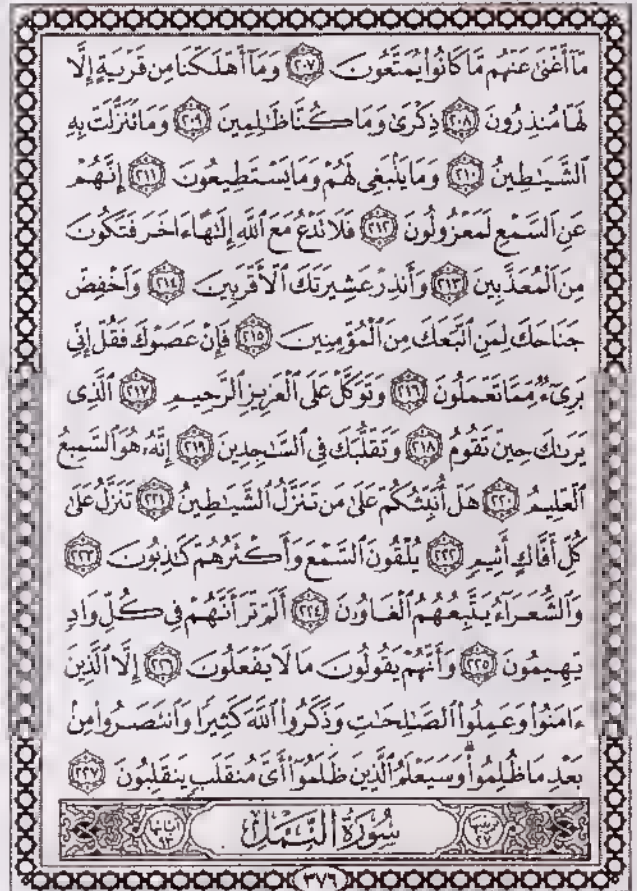 مَآ أَغْنَىٰ عَنْهُم مَّا كَانُوا۟ يُمَتَّعُونَ ٢٠٧ وَمَآ أَهْلَكْنَا مِن قَرْيَةٍ إِلَّا
لَهَا مُنذِرُونَ ٢٠٨ ذِكْرَىٰ وَمَا كُنَّا ظَٰلِمِينَ ٢٠٩ وَمَا تَنَزَّلَتْ بِهِ
ٱلشَّيَٰطِينُ ٢١٠ وَمَا يَنۢبَغِى لَهُمْ وَمَا يَسْتَطِيعُونَ ٢١١ إِنَّهُمْ
عَنِ ٱلسَّمْعِ لَمَعْزُولُونَ ٢١٢ فَلَا تَدْعُ مَعَ ٱللَّهِ إِلَٰهًا ءَاخَرَ فَتَكُونَ
مِنَ ٱلْمُعَذَّبِينَ ٢١٣ وَأَنذِرْ عَشِيرَتَكَ ٱلْأَقْرَبِينَ ٢١٤ وَٱخْفِضْ
جَنَاحَكَ لِمَنِ ٱتَّبَعَكَ مِنَ ٱلْمُؤْمِنِينَ ٢١٥ فَإِنْ عَصَوْكَ فَقُلْ إِنِّى
بَرِىٓءٌ مِّمَّا تَعْمَلُونَ ٢١٦ وَتَوَكَّلْ عَلَى ٱلْعَزِيزِ ٱلرَّحِيمِ ٢١٧ ٱلَّذِى
يَرَىٰكَ حِينَ تَقُومُ ٢١٨ وَتَقَلُّبَكَ فِى ٱلسَّٰجِدِينَ ٢١٩ إِنَّهُۥ هُوَ ٱلسَّمِيعُ
ٱلْعَلِيمُ ٢٢٠ هَلْ أُنَبِّئُكُمْ عَلَىٰ مَن تَنَزَّلُ ٱلشَّيَٰطِينُ ٢٢١ تَنَزَّلُ عَلَىٰ
كُلِّ أَفَّاكٍ أَثِيمٍ ٢٢٢ يُلْقُونَ ٱلسَّمْعَ وَأَكْثَرُهُمْ كَٰذِبُونَ ٢٢٣
وَٱلشُّعَرَآءُ يَتَّبِعُهُمُ ٱلْغَاوُۥنَ ٢٢٤ أَلَمْ تَرَ أَنَّهُمْ فِى كُلِّ وَادٍ
يَهِيمُونَ ٢٢٥ وَأَنَّهُمْ يَقُولُونَ مَا لَا يَفْعَلُونَ ٢٢٦ إِلَّا ٱلَّذِينَ
ءَامَنُوا۟ وَعَمِلُوا۟ ٱلصَّٰلِحَٰتِ وَذَكَرُوا۟ ٱللَّهَ كَثِيرًا وَٱنتَصَرُوا۟ مِنۢ
بَعْدِ مَا ظُلِمُوا۟ ۗ وَسَيَعْلَمُ ٱلَّذِينَ ظَلَمُوٓا۟ أَىَّ مُنقَلَبٍ يَنقَلِبُونَ ٢٢٧
سُورَةُ ٱلنَّمْلِ
٣٧٦